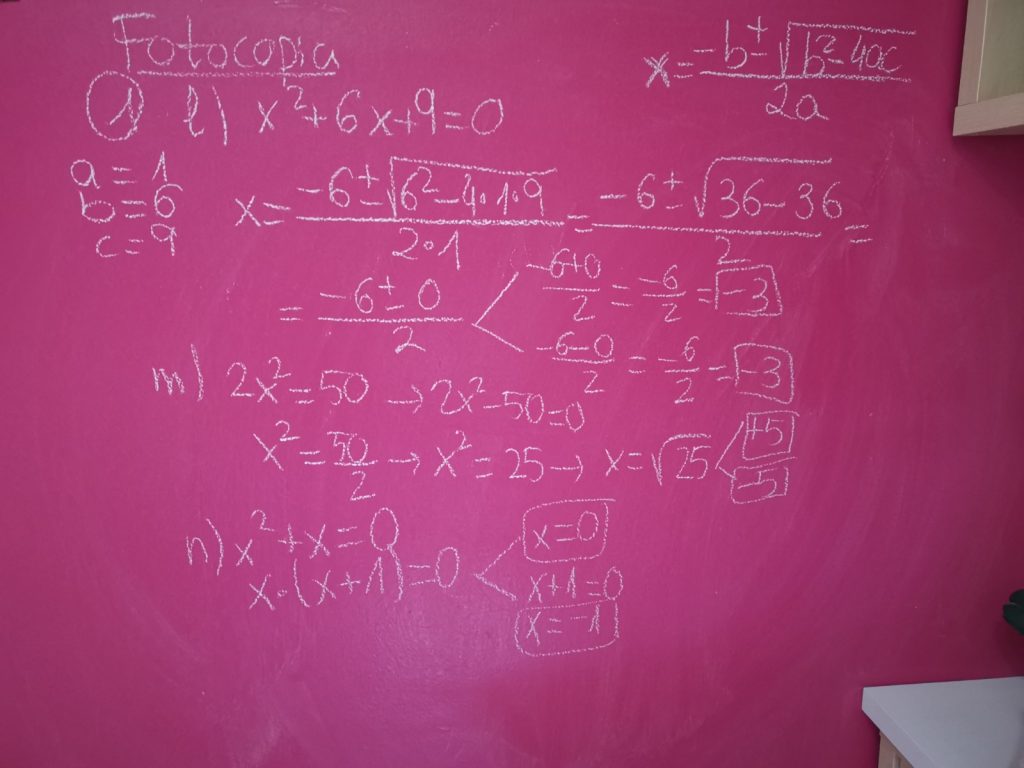 Fotocopia
x = -b ± √b² - 4ac / 2a
① l) x² + 6x + 9 = 0
a = 1
b = 6
c = 9
x = -6 ± √6² - 4·1·9 / 2·1 = -6 ± √36 - 36 / 2 =
= -6 ± 0 / 2 < -6+0 / 2 = -6 / 2 = -3
-6-0 / 2 = -6 / 2 = -3
m) 2x² = 50 → 2x² - 50 = 0
x² = 50 / 2 → x² = 25 → x = √25 < +5
-5
n) x² + x = 0
x·(x+1) = 0 < x = 0
x + 1 = 0
x = -1